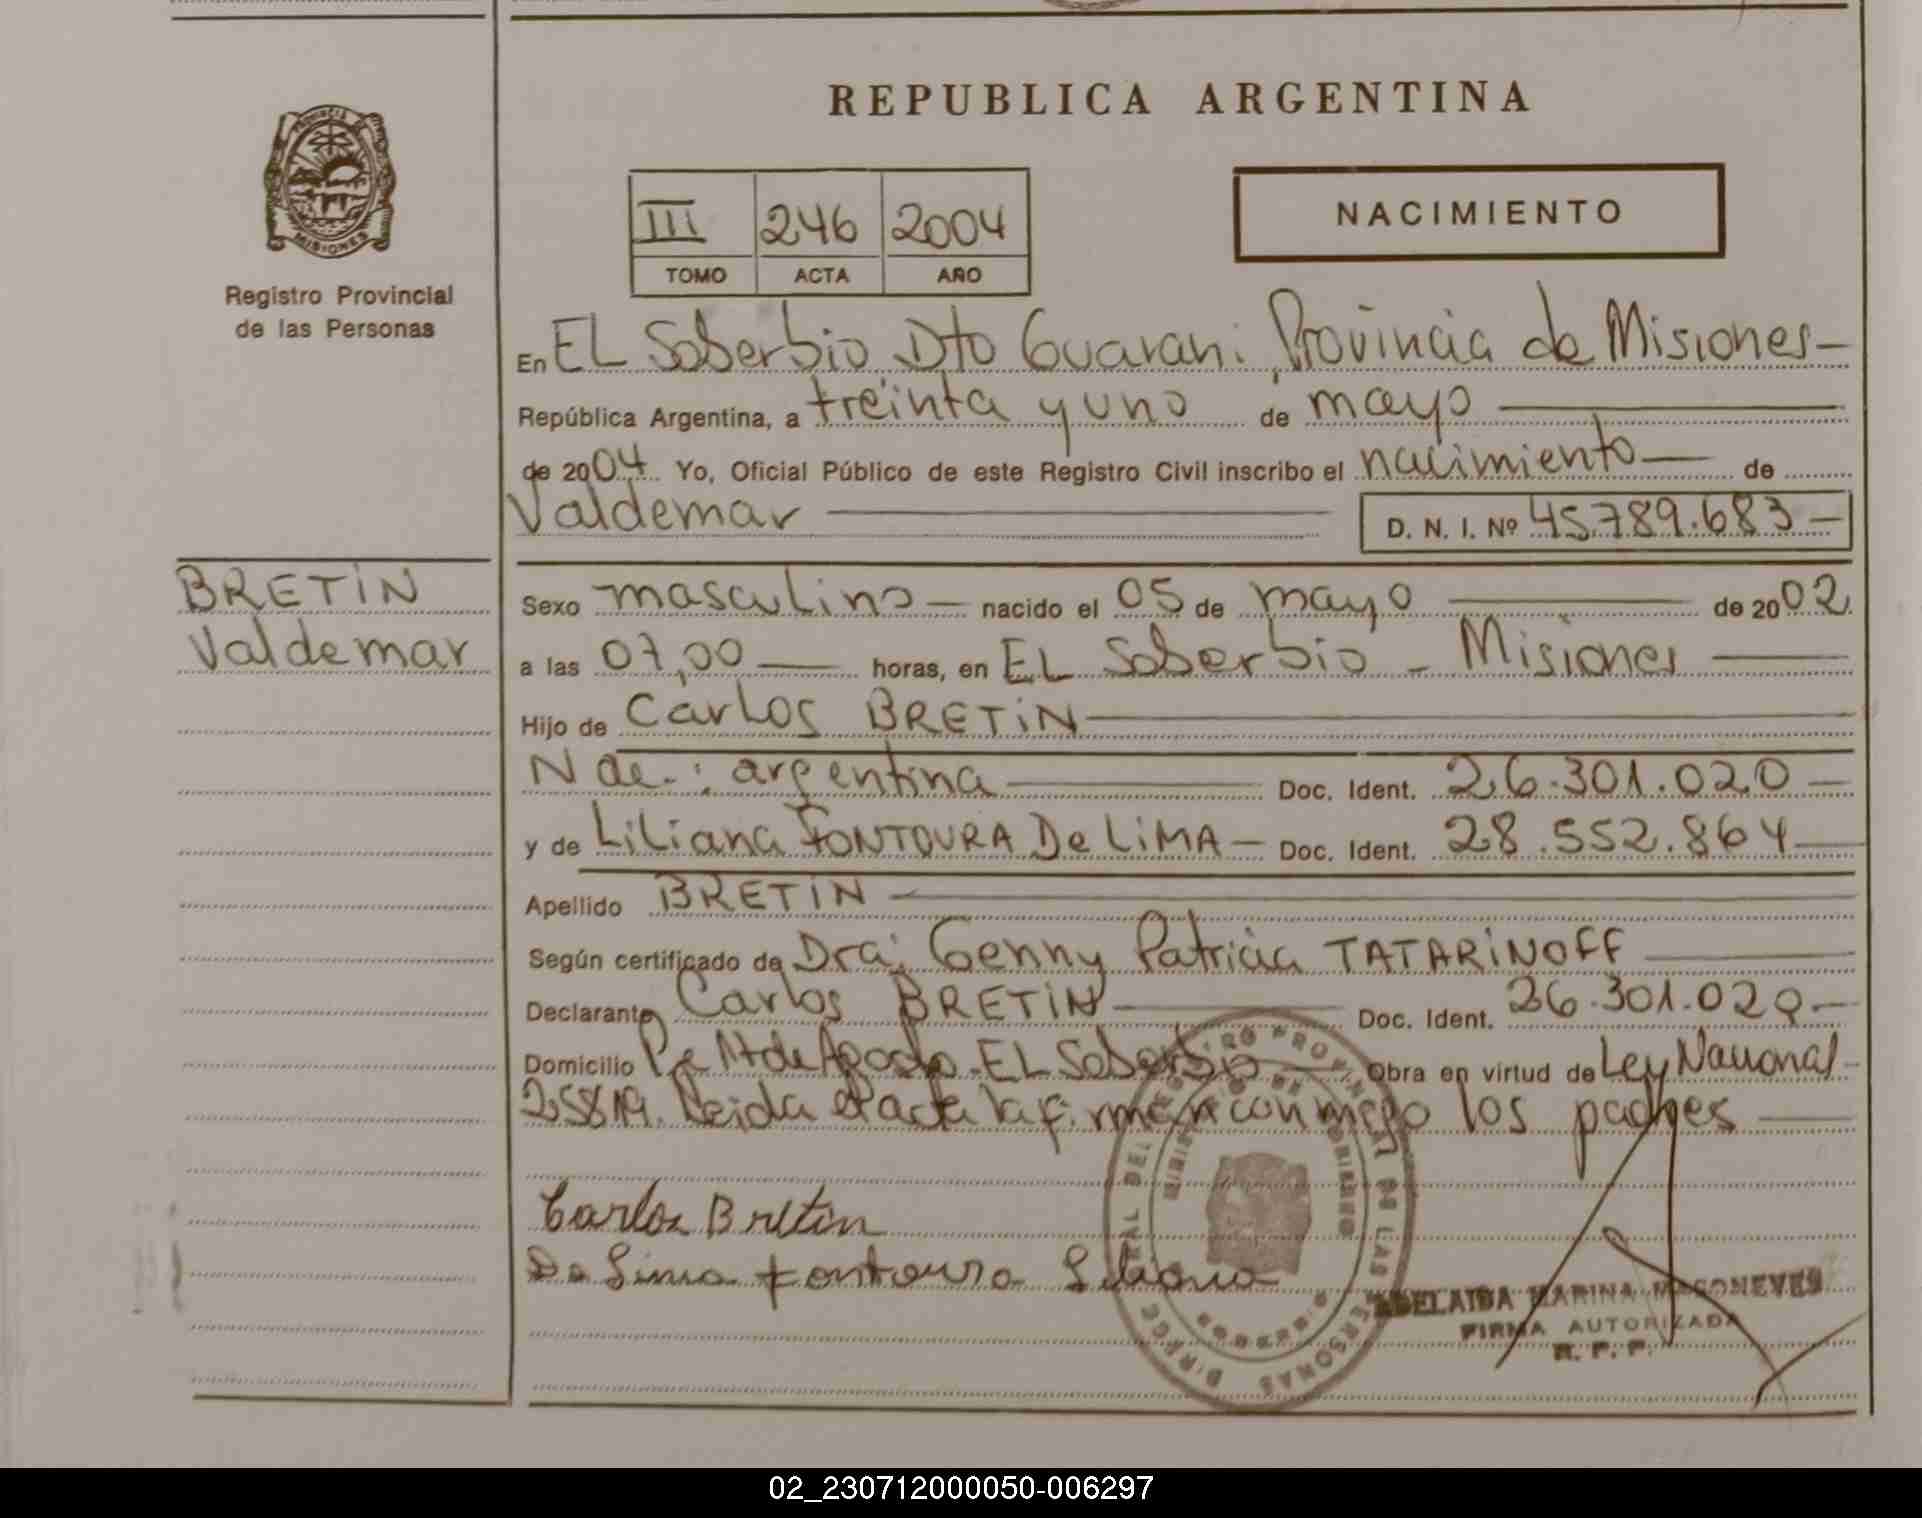 REPUBLICA ARGENTINA
PROVINCIA DE
MISIONES
Registro Provincial
de las Personas
III 246 2004
TOMO ACTA AÑO
NACIMIENTO
En EL Soberbio Dto Guarani Provincia de Misiones
República Argentina, a treinta y uno de mayo
de 2004 Yo, Oficial Público de este Registro Civil inscribo el nacimiento de
Valdemar D. N. I. Nº 45.789.683
BRETIN
Valdemar
Sexo masculino nacido el 05 de mayo de 2002
a las 07,00 horas, en EL Soberbio - Misiones
Hijo de Carlos BRETIN
N de.: argentina Doc. Ident. 26.301.020
y de Liliana FONTOURA De LiMA Doc. Ident. 28.552.864
Apellido BRETIN
Según certificado de Dra. Genny Patricia TATARINOFF
Declarante Carlos BRETIN Doc. Ident. 26.301.020
Domicilio EL Soberbio Obra en virtud de Ley Nacional
25819. Leida el acta la firman conmigo los padres
Carlos Bretin
De Lima Fontoura Liliana
DEL REGISTRO PROVINCIAL DE LAS PERSONAS
ADELAIDA MARINA
FIRMA AUTORIZADA
R. P. P.
02_230712000050-006297